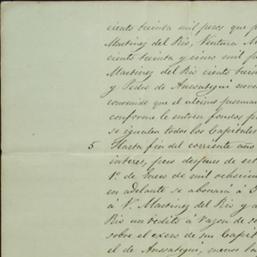 ciento treinta mil pesos que p
Martinez del Rio, Ventura M
ciento treinta y cinco mil p
Martinez del Rio ciento trein
y Pedro de Ansoategui nove
conviniendo que el ultimo
conforme le entren fondos p
se igualen todos los Capitales
5 Hasta fin del corriente año
interes, pero despues de est
1º de Enero de mil ochocien
en adelante se abonará á D
á V. Martinez del Rio y a
Rio un redito á razon de s
sobre el exeso de sus Capit
el de Ansoategui, menos la